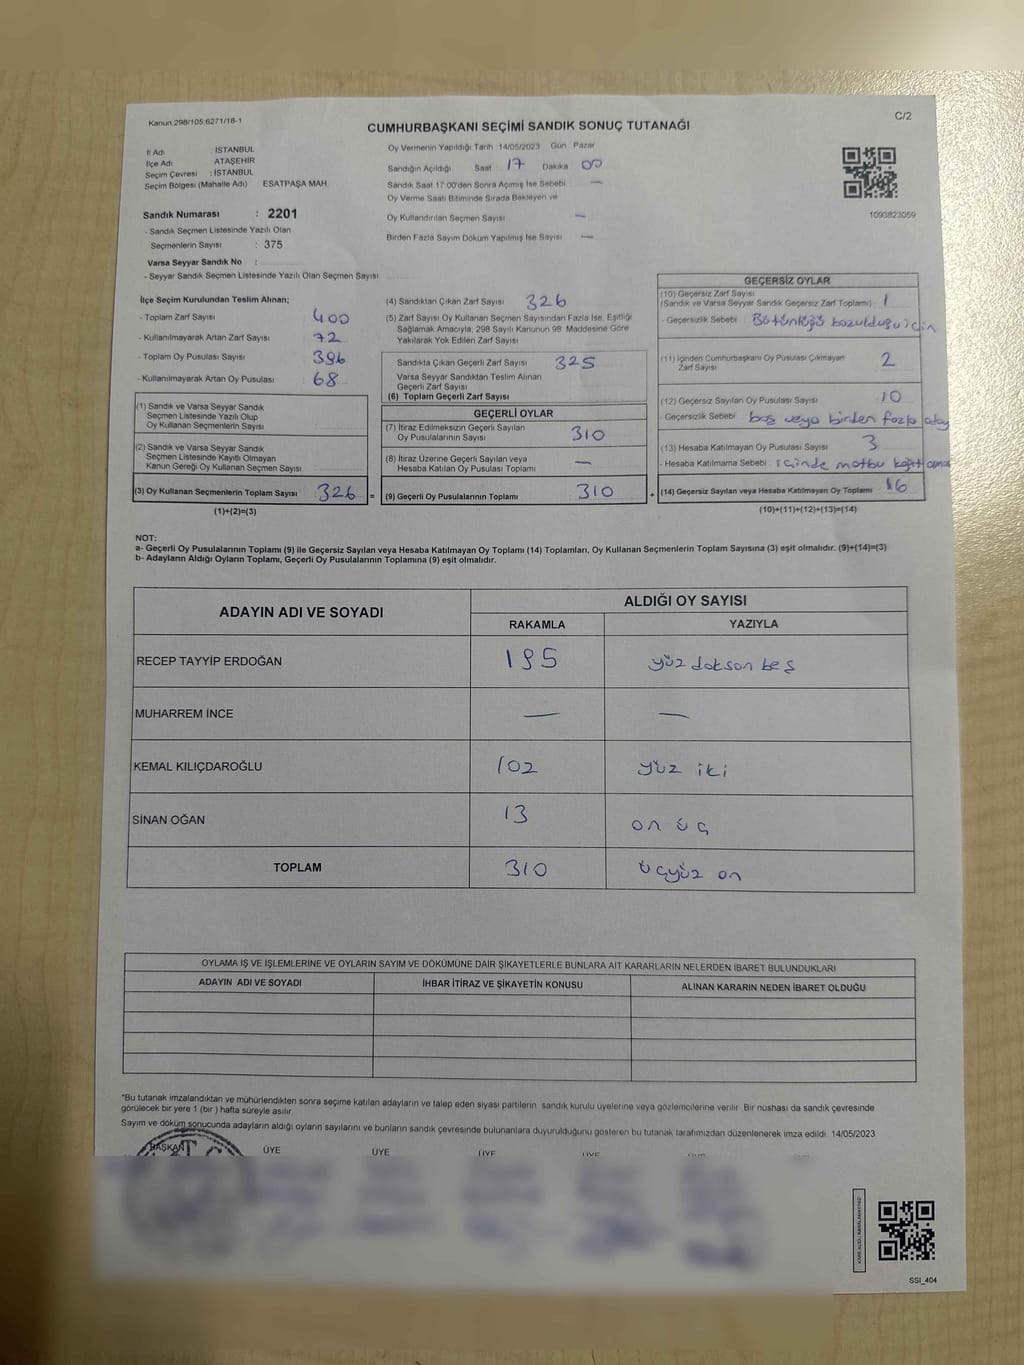 Kanun:298/105,6271/18-1
C/2
CUMHURBAŞKANI SEÇİMİ SANDIK SONUÇ TUTANAĞI
İl Adı : İSTANBUL
İlçe Adı : ATAŞEHİR
Seçim Çevresi : İSTANBUL
Seçim Bölgesi (Mahalle Adı) ESATPAŞA MAH
Sandık Numarası : 2201
- Sandık Seçmen Listesinde Yazılı Olan
Seçmenlerin Sayısı : 375
Varsa Seyyar Sandık No :
- Seyyar Sandık Seçmen Listesinde Yazılı Olan Seçmen Sayısı
Oy Vermenin Yapıldığı Tarih 14/05/2023 Gün Pazar
Sandığın Açıldığı Saat 17 Dakika 00
Sandık Saat 17:00'den Sonra Açımış İse Sebebi —
Oy Verme Saati Bitiminde Sırada Bekleyen ve
Oy Kullandırılan Seçmen Sayısı —
Birden Fazla Sayım Döküm Yapılmış İse Sayısı —
1093823059
İlçe Seçim Kurulundan Teslim Alınan;
- Toplam Zarf Sayısı 400
- Kullanılmayarak Artan Zarf Sayısı 72
- Toplam Oy Pusulası Sayısı 396
- Kullanılmayarak Artan Oy Pusulası 68
(1) Sandık ve Varsa Seyyar Sandık
Seçmen Listesinde Yazılı Olup
Oy Kullanan Seçmenlerin Sayısı
(2) Sandık ve Varsa Seyyar Sandık
Seçmen Listesinde Kayıtlı Olmayan
Kanun Gereği Oy Kullanan Seçmen Sayısı
(3) Oy Kullanan Seçmenlerin Toplam Sayısı 326 =
(1)+(2)=(3)
(4) Sandıktan Çıkan Zarf Sayısı 326
(5) Zarf Sayısı Oy Kullanan Seçmen Sayısından Fazla İse, Eşitliği
Sağlamak Amacıyla, 298 Sayılı Kanunun 98. Maddesine Göre
Yakılarak Yok Edilen Zarf Sayısı
Sandıkta Çıkan Geçerli Zarf Sayısı 325
Varsa Seyyar Sandıktan Teslim Alınan
Geçerli Zarf Sayısı
(6) Toplam Geçerli Zarf Sayısı
GEÇERLİ OYLAR
(7) İtiraz Edilmeksizin Geçerli Sayılan
Oy Pusulalarının Sayısı 310
(8) İtiraz Üzerine Geçerli Sayılan veya
Hesaba Katılan Oy Pusulası Toplamı —
(9) Geçerli Oy Pusulalarının Toplamı 310 +
GEÇERSİZ OYLAR
(10) Geçersiz Zarf Sayısı
(Sandık ve Varsa Seyyar Sandık Geçersiz Zarf Toplamı) 1
- Geçersizlik Sebebi Bütünlüğü bozulduğu için
(11) İçinden Cumhurbaşkanı Oy Pusulası Çıkmayan
Zarf Sayısı 2
(12) Geçersiz Sayılan Oy Pusulası Sayısı 10
Geçersizlik Sebebi boş veya birden fazla aday
(13) Hesaba Katılmayan Oy Pusulası Sayısı 3
- Hesaba Katılmama Sebebi içinde matbu kağıt
(14) Geçersiz Sayılan veya Hesaba Katılmayan Oy Toplamı 16
(10)+(11)+(12)+(13)=(14)
NOT:
a- Geçerli Oy Pusulalarının Toplamı (9) ile Geçersiz Sayılan veya Hesaba Katılmayan Oy Toplamı (14) Toplamları, Oy Kullanan Seçmenlerin Toplam Sayısına (3) eşit olmalıdır. (9)+(14)=(3)
b- Adayların Aldığı Oyların Toplamı, Geçerli Oy Pusulalarının Toplamına (9) eşit olmalıdır.
ADAYIN ADI VE SOYADI
ALDIĞI OY SAYISI
RAKAMLA YAZIYLA
RECEP TAYYİP ERDOĞAN 195 yüz doksan beş
MUHARREM İNCE — —
KEMAL KILIÇDAROĞLU 102 yüz iki
SİNAN OĞAN 13 on üç
TOPLAM 310 üçyüz on
OYLAMA İŞ VE İŞLEMLERİNE VE OYLARIN SAYIM VE DÖKÜMÜNE DAİR ŞİKAYETLERLE BUNLARA AİT KARARLARIN NELERDEN İBARET BULUNDUKLARI
ADAYIN ADI VE SOYADI İHBAR İTİRAZ VE ŞİKAYETİN KONUSU ALINAN KARARIN NEDEN İBARET OLDUĞU
*Bu tutanak imzalandıktan ve mühürlendikten sonra seçime katılan adayların ve talep eden siyasi partilerin sandık kurulu üyelerine veya gözlemcilerine verilir. Bir nüshası da sandık çevresinde
görülecek bir yere 1 (bir) hafta süreyle asılır.
Sayım ve döküm sonucunda adayların aldığı oyların sayılarını ve bunların sandık çevresinde bulunanlara duyurulduğunu gösteren bu tutanak tarafımızdan düzenlenerek imza edildi. 14/05/2023
BAŞKAN ÜYE ÜYE ÜYE ÜYE
SSI_404